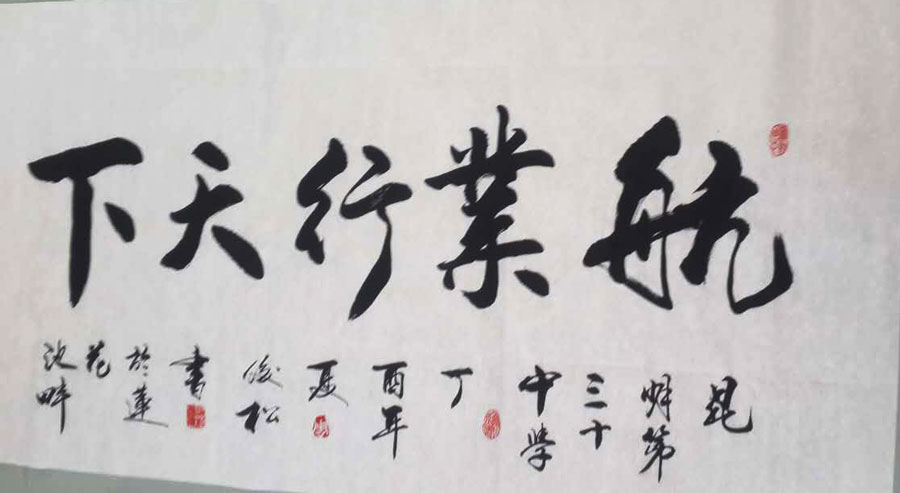 航業行天下
昆明第三十中學丁酉年夏俊松書於蓮花池畔